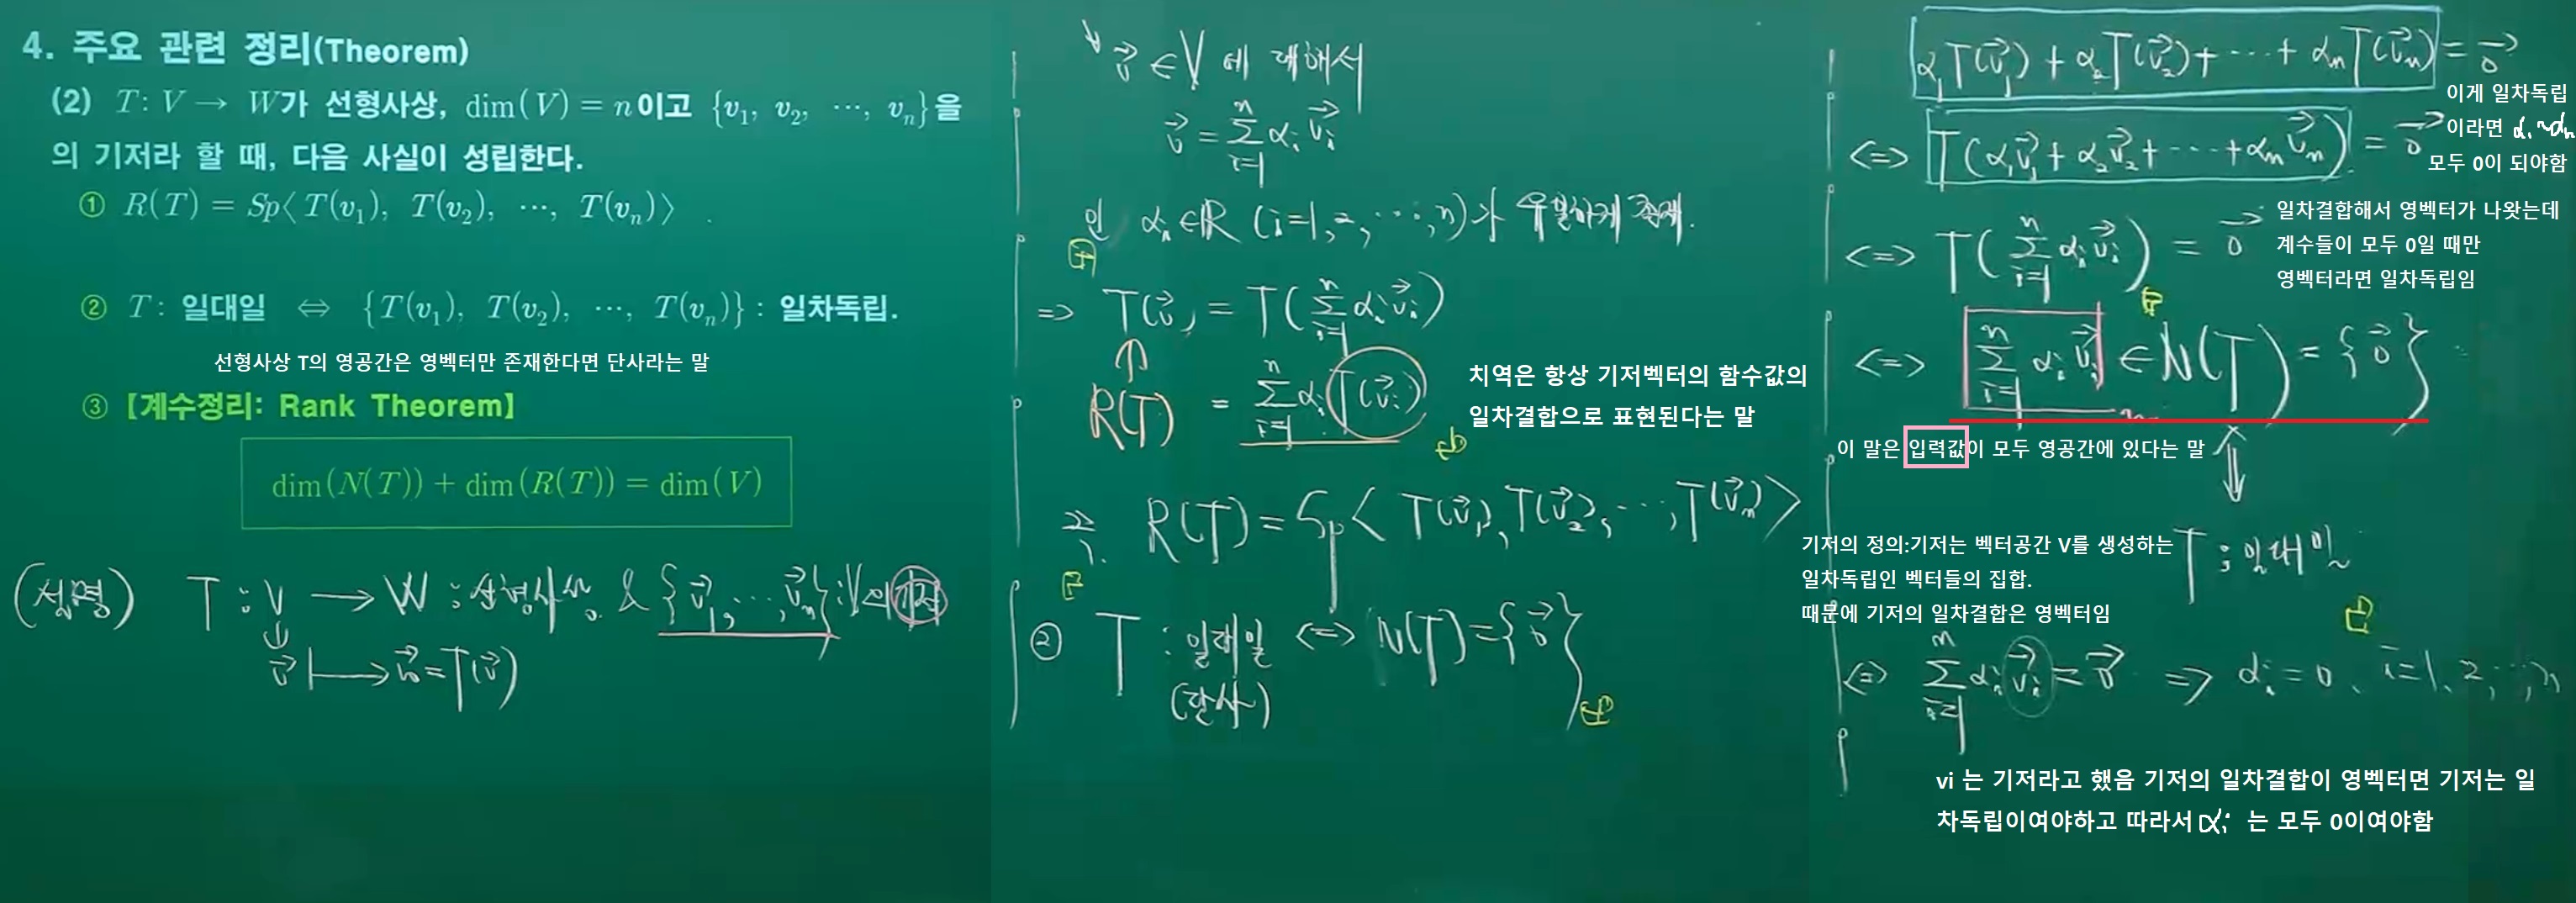 4. 주요 관련 정리(Theorem)
(2) T: V → W가 선형사상, dim(V) = n이고 {v₁, v₂, ⋯, vₙ}을
의 기저라 할 때, 다음 사실이 성립한다.
① R(T) = Sp⟨T(v₁), T(v₂), ⋯, T(vₙ)⟩
② T: 일대일 ⇔ {T(v₁), T(v₂), ⋯, T(vₙ)}: 일차독립.
선형사상 T의 영공간은 영벡터만 존재한다면 단사라는 말
③ [계수정리: Rank Theorem]
dim(N(T)) + dim(R(T)) = dim(V)
(설명) T : V → W : 선형사상 & {v⃗₁, ⋯, v⃗ₙ} : V의 기저
v⃗ ↦ w⃗ = T(v⃗)
∀v⃗ ∈ V 에 대해서
v⃗ = Σⁿᵢ₌₁ αᵢ v⃗ᵢ
인 αᵢ ∈ R (i=1, 2, ⋯, n)가 유일하게 존재.
⇒ T(v⃗) = T(Σⁿᵢ₌₁ αᵢ v⃗ᵢ)
R(T) = Σⁿᵢ₌₁ αᵢ T(v⃗ᵢ)
치역은 항상 기저벡터의 함수값의
일차결합으로 표현된다는 말
즉. R(T) = Sp⟨T(v⃗₁), T(v⃗₂), ⋯, T(v⃗ₙ)⟩
② T : 일대일 ⇔ N(T) = {0⃗}
(단사)
α₁T(v⃗₁) + α₂T(v⃗₂) + ⋯ + αₙT(v⃗ₙ) = 0⃗
이게 일차독립
이라면 α₁~αₙ
모두 0이 되야함
⇔ T(α₁v⃗₁ + α₂v⃗₂ + ⋯ + αₙv⃗ₙ) = 0⃗
⇔ T(Σⁿᵢ₌₁ αᵢ v⃗ᵢ) = 0⃗
일차결합해서 영벡터가 나왓는데
계수들이 모두 0일 때만
영벡터라면 일차독립임
⇔ Σⁿᵢ₌₁ αᵢ v⃗ᵢ ∈ N(T) = {0⃗}
이 말은 입력값이 모두 영공간에 있다는 말
T : 일대일
기저의 정의:기저는 벡터공간 V를 생성하는
일차독립인 벡터들의 집합.
때문에 기저의 일차결합은 영벡터임
⇔ Σⁿᵢ₌₁ αᵢ v⃗ᵢ = 0⃗ ⇒ αᵢ = 0, i=1, 2, ⋯, n
vi 는 기저라고 했음 기저의 일차결합이 영벡터면 기저는 일
차독립이여야하고 따라서 αᵢ 는 모두 0이여야함